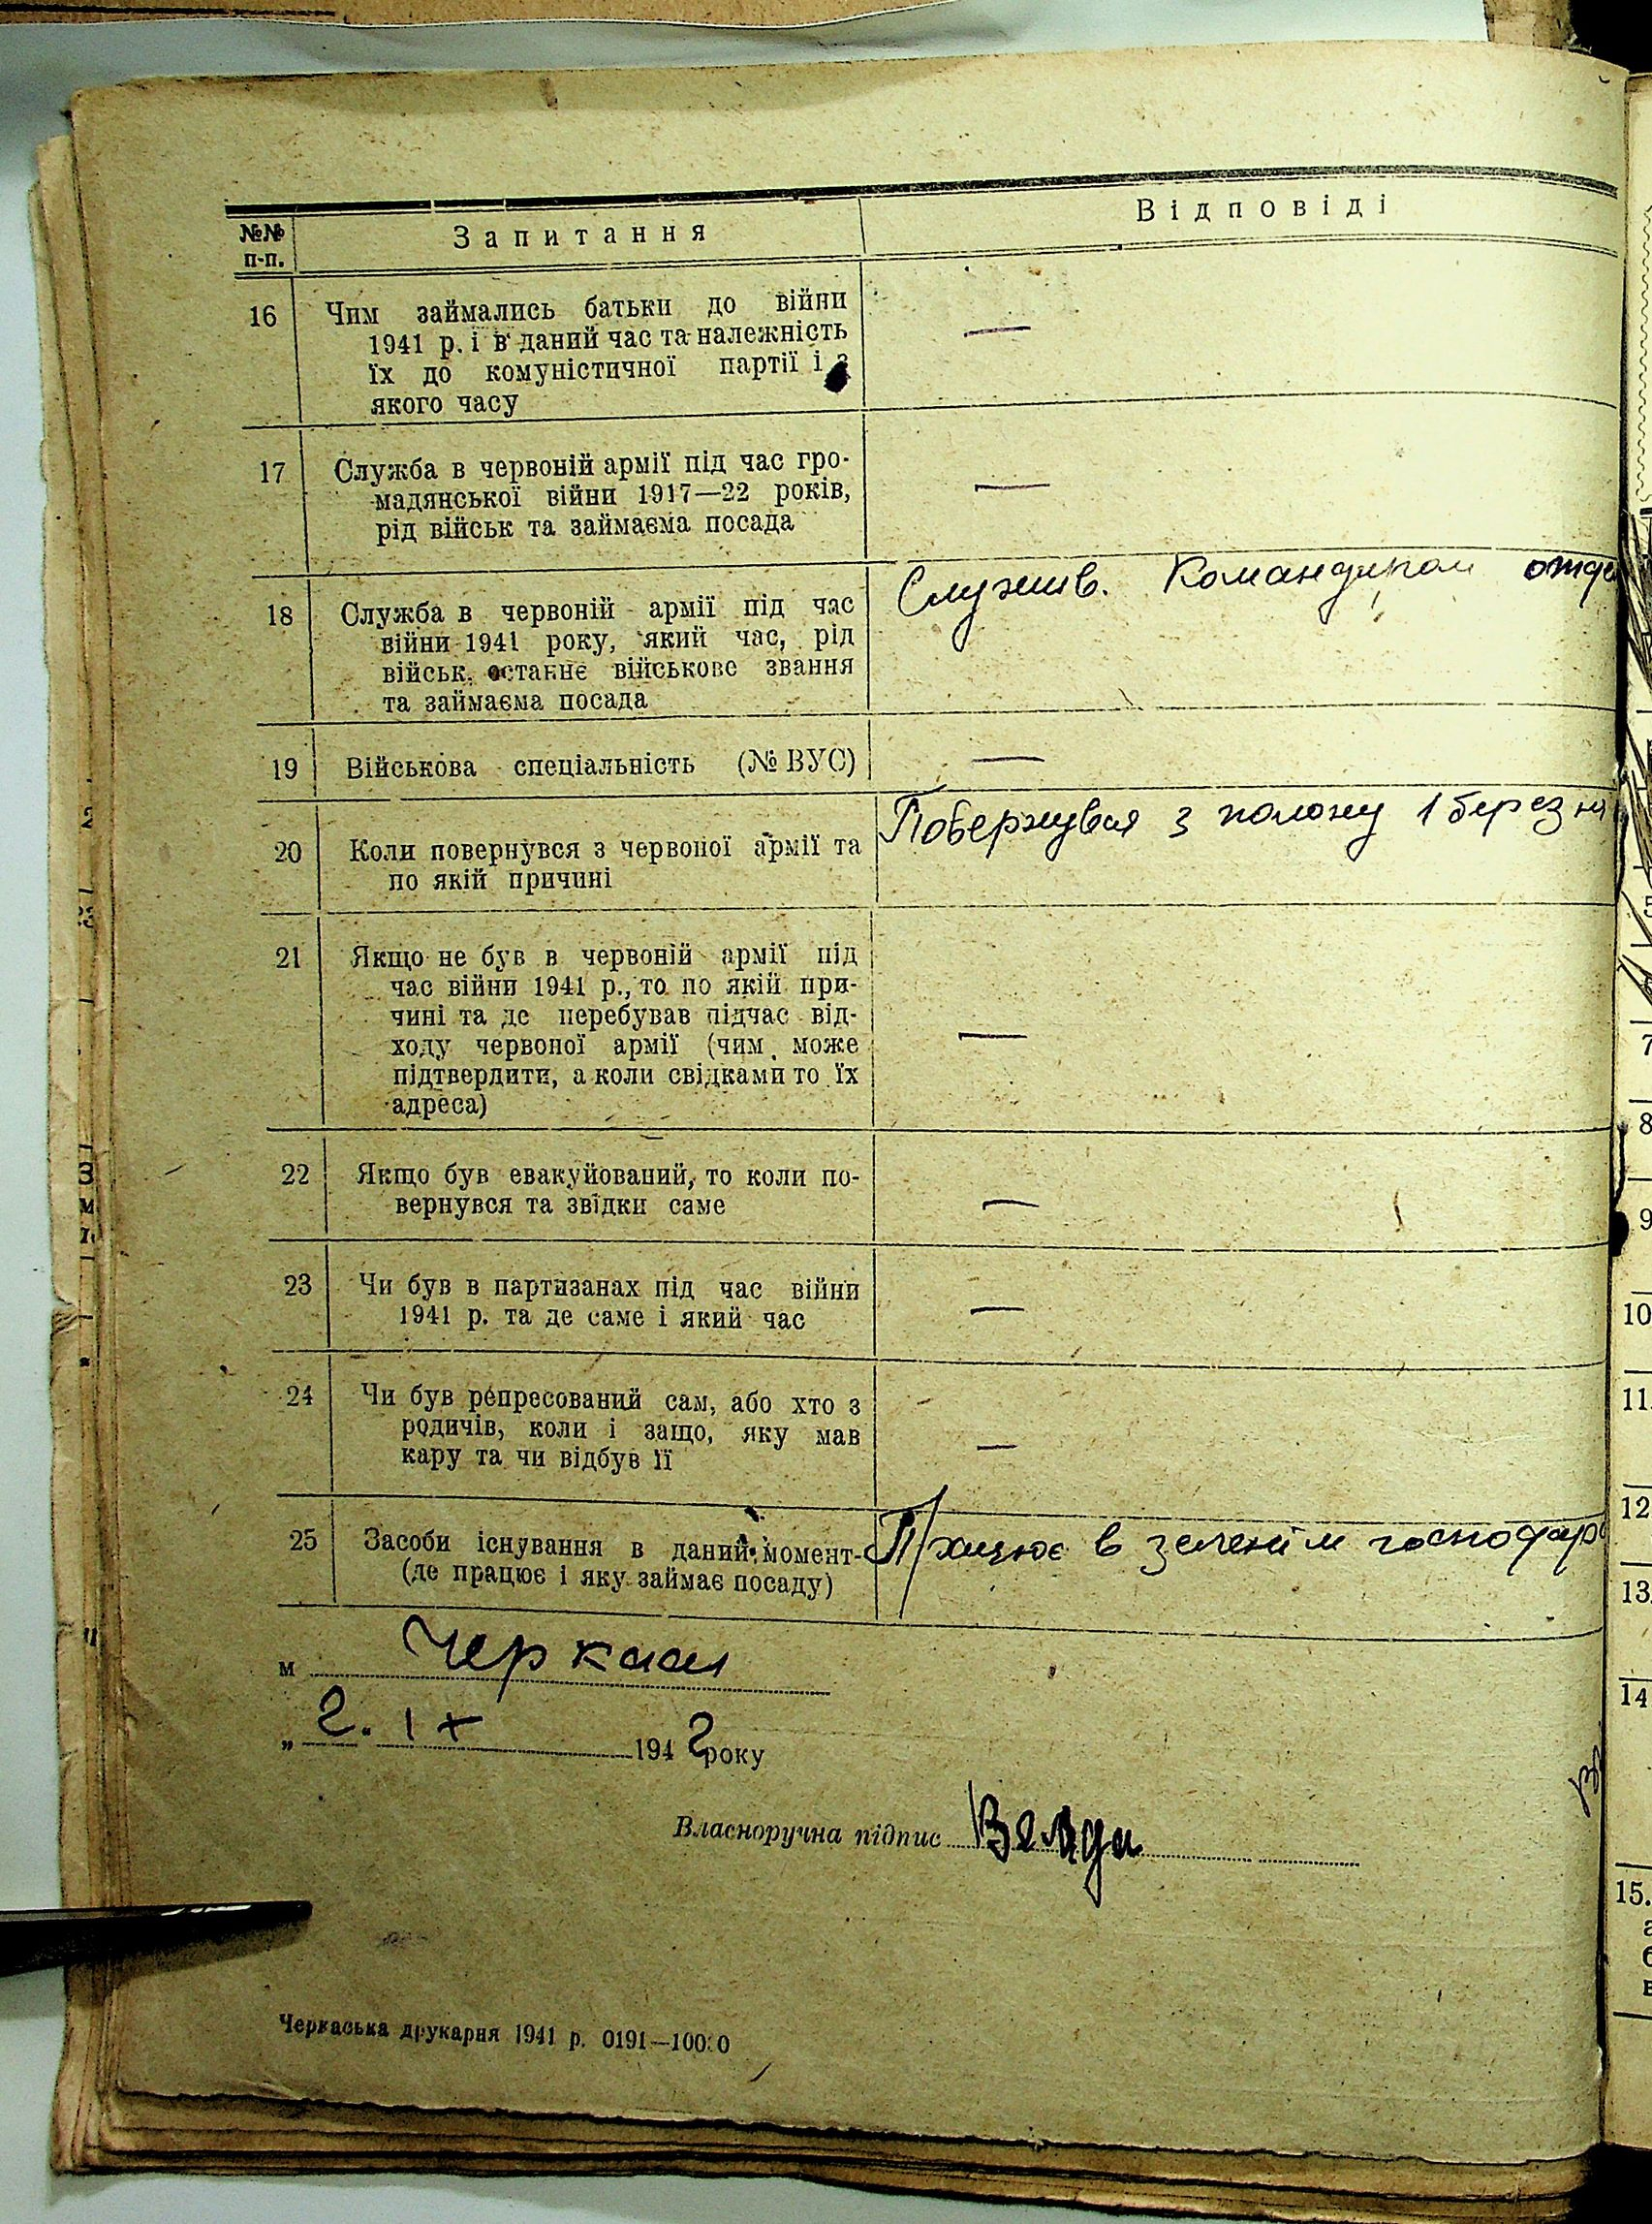 №№ п-п.
Запитання
Відповіді
16
Чим займались батьки до війни
1941 р. і в даний час та належність
їх до комуністичної партії і з
якого часу
—
17
Служба в червоній армії під час гро-
мадянської війни 1917—22 років,
рід військ та займаєма посада
—
18
Служба в червоній армії під час
війни 1941 року, який час, рід
військ, останнє військове звання
та займаєма посада
Служив. Командиром отде
19
Військова спеціальність (№ ВУС)
—
20
Коли повернувся з червоної армії та
по якій причині
Повернувся з полону 1 березня
21
Якщо не був в червоній армії під
час війни 1941 р., то по якій при-
чині та де перебував підчас від-
ходу червоної армії (чим може
підтвердити, а коли свідками то їх
адреса)
—
22
Якщо був евакуйований, то коли по-
вернувся та звідки саме
—
23
Чи був в партизанах під час війни
1941 р. та де саме і який час
—
24
Чи був репресований сам, або хто з
родичів, коли і защо, яку мав
кару та чи відбув її
—
25
Засоби існування в даний момент
(де працює і яку займає посаду)
Працює в зеленім господар
м Черкаси
„ 2. IX 1942 року
Власноручна підпис
Черкаська друкарня 1941 р. 0191—10000
7
8
9
10
11.
12
13.
14
15.
а
б
в